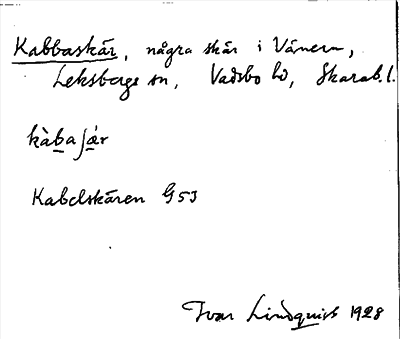 Kabbaskär, några skär i Vänern,
Leksbergs sn, Vadsbo hd, Skarab. l.
kàbaʃæ̀r
Kabelskären G 53
Ivar Lindquist 1928